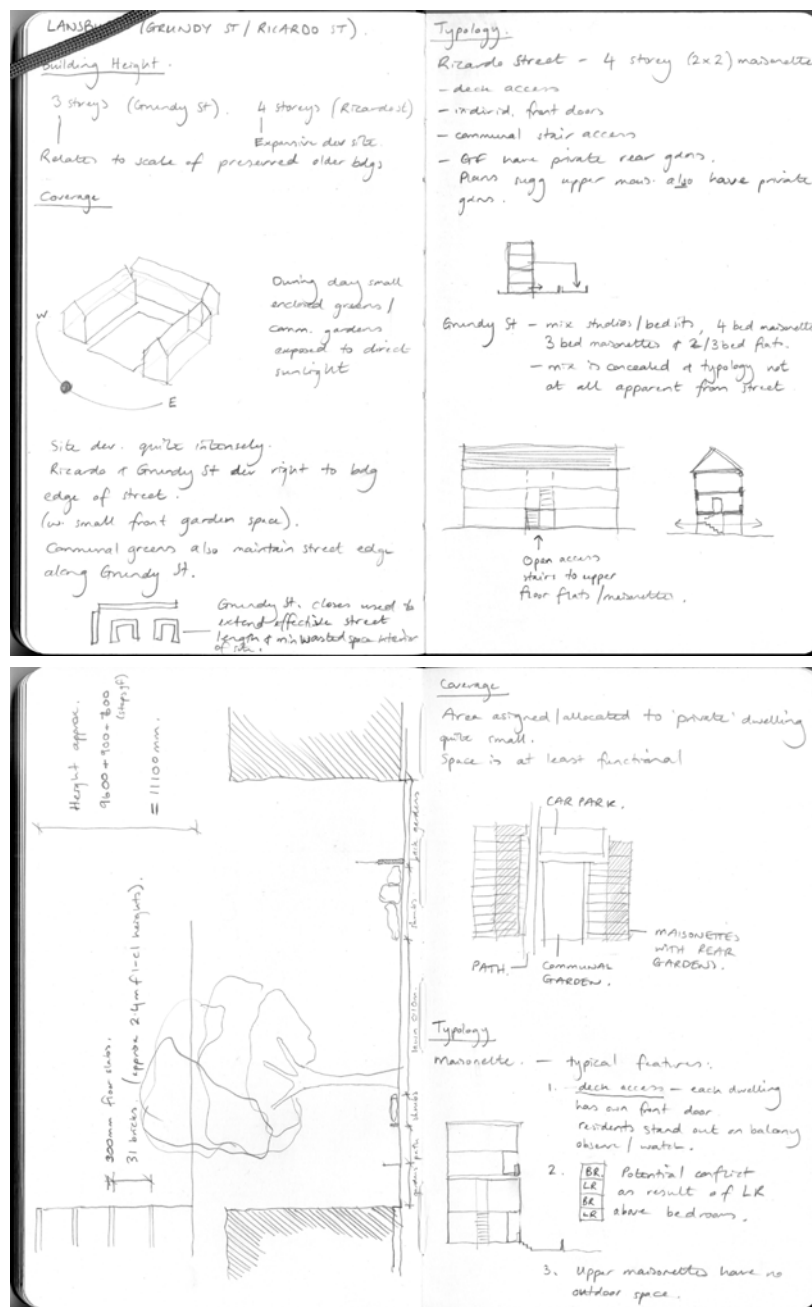 LANSBU (GRUNDY ST / RICARDO ST).
Building Height.
3 streys (Grundy St). 4 storeys (Ricardo St)
Expensive dev site.
Relates to scale of preserved older bdgs
Coverage
W
E
During day small
enclosed greens/
comm. gardens
exposed to direct
sunlight
Site dev. quite intensely.
Ricardo & Grundy St dev right to bdg
edge of street.
(w. small front garden space).
Communal greens also maintain street edge
along Grundy St.
Grundy St. closes used to
extend effective street
length & min wasted space interior
of site.
Typology.
Ricardo Street - 4 storey (2x2) maisonette
- deck access
- individ. front doors
- communal stair access
- GF have private rear gdns.
Plans sugg upper mais. also have private
gdns.
Grundy St - mix studios/bedsits, 4 bed maisonette
3 bed maisonettes & 2/3 bed flats.
- mix is concealed & typology not
at all apparent from street
Open access
stairs to upper
floor flats/maisonettes.
Height approx.
9600 + 900 + 600
(steps gf)
= 11100mm.
300mm floor slabs.
31 bricks (approx 2.4m fl-cl heights).
gardens
shrubs
lawn
shrubs
path
Coverage
Area asigned/allocated to 'private' dwelling
quite small.
Space is at least functional
CAR PARK.
PATH.
COMMUNAL
GARDEN.
MAISONETTES
WITH REAR
GARDENS.
Typology
Maisonette. - typical features:
1. deck access - each dwelling
has own front door
residents stand out on balcony
observe / watch.
2. BR Potential conflict
LR as result of LR
BR above bedrooms.
LR
3. Upper maisonettes have no
outdoor space.